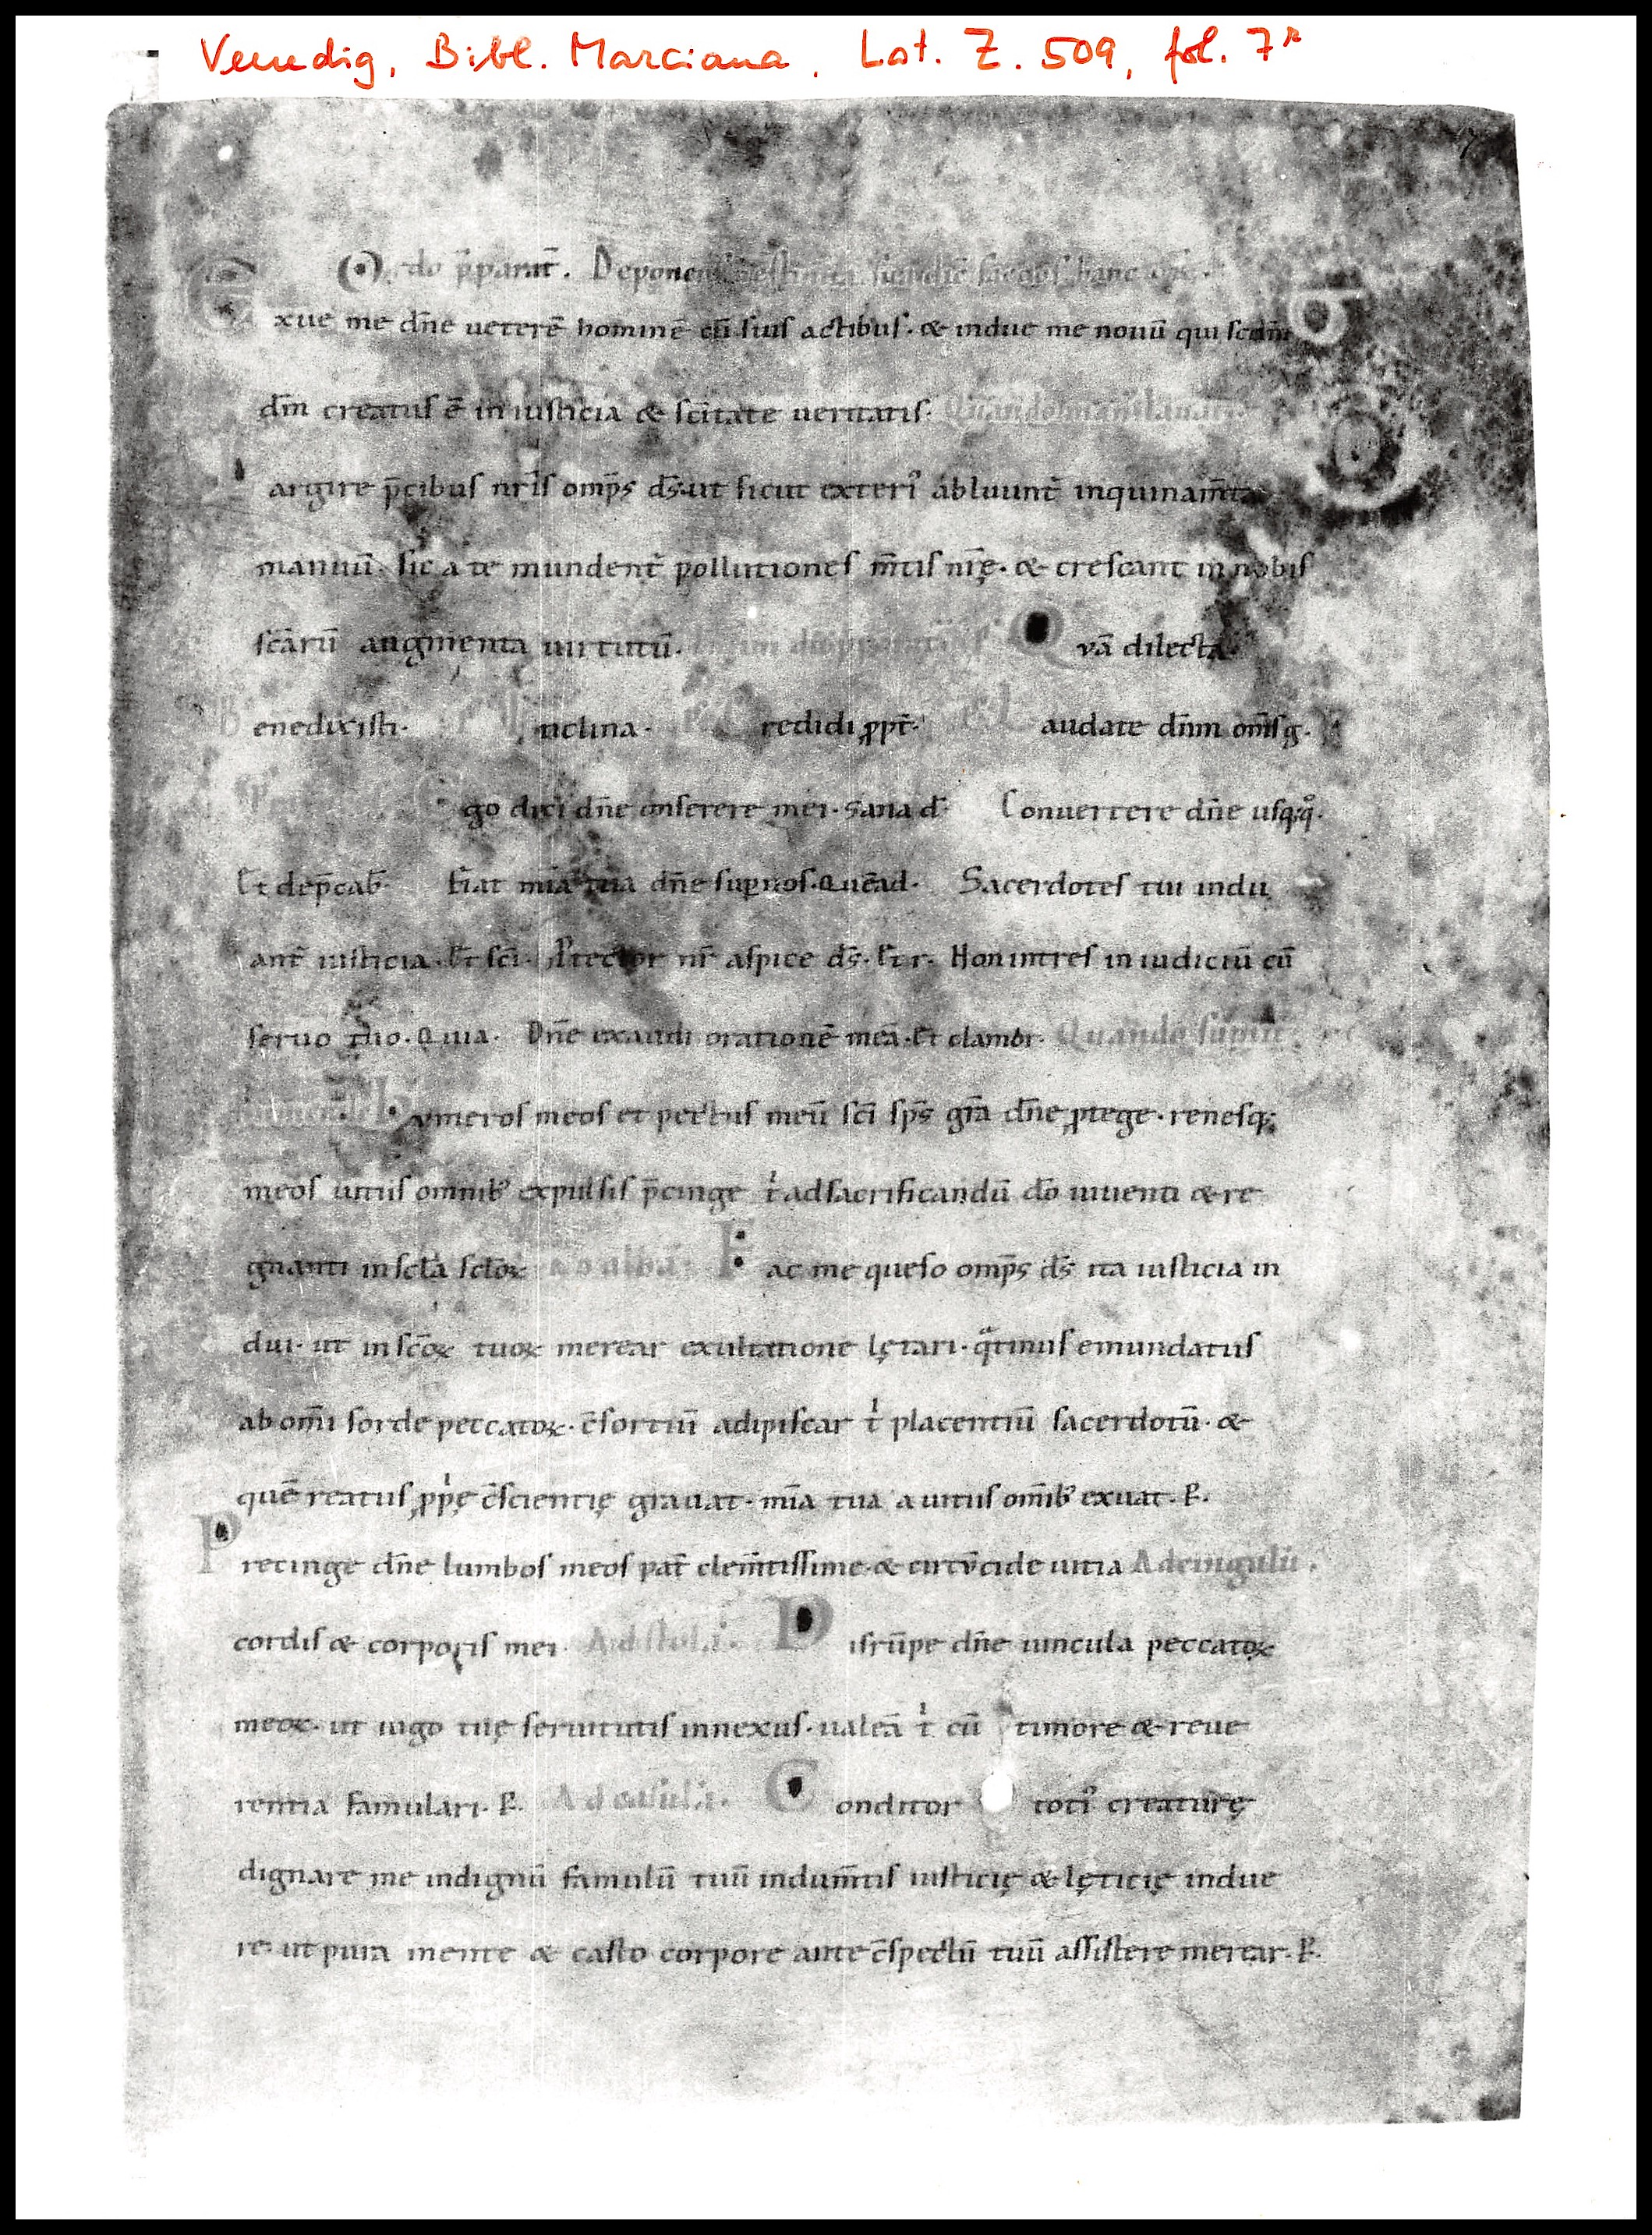 Venedig, Bibl. Marciana, Lat. Z. 509, fol. 7r
Ordo p̄parat̄. Deponens hanc
Exue me dn̄e ueterē hominē cū suis actibus. & indue me nouū qui scdm̄
dm̄ creatus ē in iusticia & sc̄itate ueritatis.
Largire p̄cibus nr̄is omp̄s ds̄. ut sicut exteriꝰ abluunt̄ inquinam̄ta
manuū. sic a te mundent̄ pollutiones m̄tis nr̄ę. & crescant in nobis
sc̄arū augmenta uirtutū. Qvā dilecta.
Benedixisti. Inclina. Credidi ꝓpt̄. Laudate dn̄m om̄s g.
go dixi dn̄e miserere mei. Sana d̄ Conuertere dn̄e usq;q̊.
Et dep̄cab̄. Fiat mīa tua dn̄e suꝑ nos. Quēad. Sacerdotes tui indu
ant̄ iusticiā. Et sc̄i. Ꝓtector nr̄ aspice ds̄. Et r. Non intres in iudiciū cū
seruo tuo. Quia. Dn̄e exaudi orationē meā. Et clamor. Quando sumit
hvmeros meos et pectus meū sc̄i sp̄s gr̄a dn̄e ꝓtege. renesq;
meos uitiis omnibꝰ expulsis p̄cinge tͥ ad sacrificandū dō uiuenti & re
gnanti in scl̄a scl̄oꝝ Ad albā. Fac me queso omp̄s ds̄ ita iusticia in
dui. ut in sc̄oꝝ tuoꝝ merear exultatione lętari. qͣtinus emundatus
ab om̄i sorde peccatoꝝ. c̄sortiū adipiscar tͥ placentiū sacerdotū. &
quē reatus ꝓpͥę c̄scientię grauat. mīa tua a uitiis om̄ibꝰ exuat. P.
Precinge dn̄e lumbos meos pat̄ clem̄tissime. & circv̄cide uitia Ad cingulū.
cordis & corporis mei. Ad stolā. Disrūpe dn̄e uincula peccatoꝝ
meoꝝ. ut iugo tuę seruitutis innexus. ualeā tͥ cū timore & reue
rentia famulari. P. Ad casulā. Conditor totiꝰ creaturę
dignare me indignū famulū tuū indum̄tis iusticię & lęticię indue
re. ut pura mente & casto corpore ante c̄spectū tuū assistere merear. P.